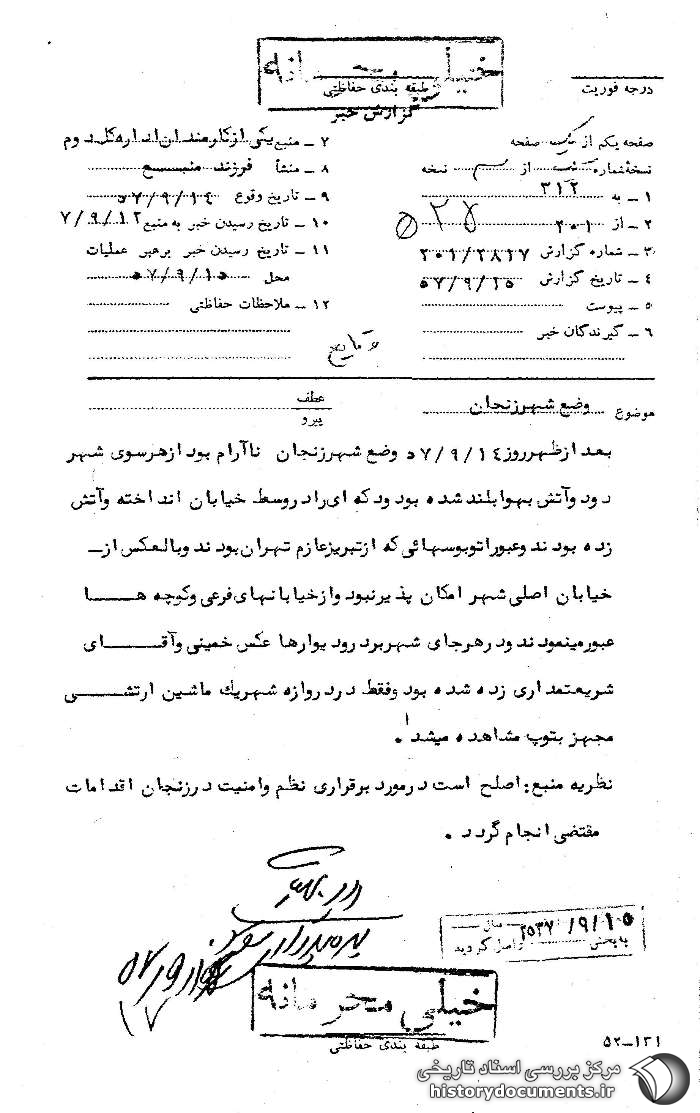 خیلی محرمانه
طبقه بندی حفاظتی
گزارش خبر
درجه فوریت
صفحه یکم از یک صفحه
نسخهٔ شماره یک از سه نسخه
۱ ـ به ۳۱۲
۲ ـ از ۲۰۱
۳ ـ شماره گزارش ۲۰۱/۲۸۲۷
۴ ـ تاریخ گزارش ۵۷/۹/۱۵
۵ ـ پیوست
۶ ـ گیرندگان خبر
۷ ـ منبع یکی ازکارمندان اداره کل دوم
۸ ـ منشأ فرزند منبع
۹ ـ تاریخ وقوع ۵۷/۹/۱۴
۱۰ ـ تاریخ رسیدن خبر به منبع
۱۱ ـ تاریخ رسیدن خبر برهبر عملیات
محل ۵۷/۹/۱۵
۱۲ ـ ملاحظات حفاظتی
موضوع وضع شهرزنجان
عطف
پیرو
بعد ازظهرروز ۵۷/۹/۱۴ وضع شهرزنجان ناآرام بود ازهرسوی شهر
دود وآتش بهوابلند شده بود ودکه ای رادروسط خیابان انداخته وآتش
زده بودند وعبوراتوبوسهائی که ازتبریزعازم تهران بودند وبالعکس از ـ
خیابان اصلی شهر امکان پذیرنبود وازخیابانهای فرعی وکوچه هـــا
عبورمینمودند ودرهرجای شهربردرودیوارها عکس خمینی وآقـــای
شریعتمداری زده شده بود وفقط دردروازه شهریك ماشین ارتشـــی
مجهز بتوپ مشاهده میشد .
نظریه منبع: اصلح است درمورد برقراری نظم وامنیت درزنجان اقدامات
مقتضی انجام گردد .
۲۵۳۷/۹/۱۵
خیلی محرمانه
طبقه بندی حفاظتی
۵۲ـ۱۳۱
مرکز بررسی اسناد تاریخی
historydocuments.ir